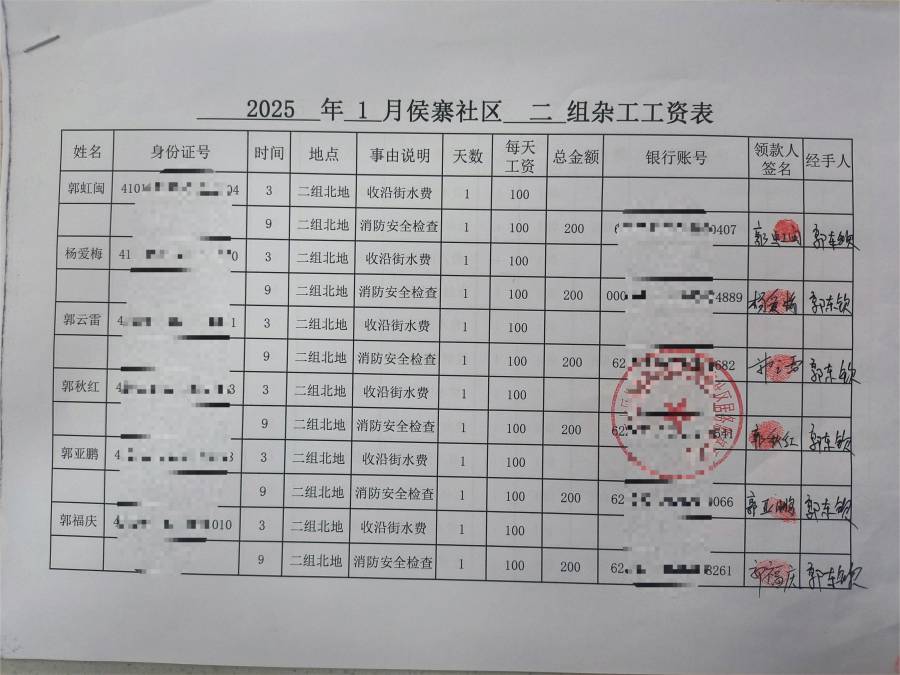 2025 年 1 月侯寨社区 二 组杂工工资表
姓名 身份证号 时间 地点 事由说明 天数 每天工资 总金额 银行账号 领款人签名 经手人
郭虹闽 410 04 3 二组北地 收沿街水费 1 100
9 二组北地 消防安全检查 1 100 200 6 0407 郭虹闽 郭东钦
杨爱梅 41 0 3 二组北地 收沿街水费 1 100
9 二组北地 消防安全检查 1 100 200 000 4889 杨爱梅 郭东钦
郭云雷 4 1 3 二组北地 收沿街水费 1 100
9 二组北地 消防安全检查 1 100 200 62 682 郭东钦
郭秋红 4 3 3 二组北地 收沿街水费 1 100
9 二组北地 消防安全检查 1 100 200 62 541 郭秋红 郭东钦
郭亚鹏 4 3 3 二组北地 收沿街水费 1 100
9 二组北地 消防安全检查 1 100 200 62 0066 郭亚鹏 郭东钦
郭福庆 4 010 3 二组北地 收沿街水费 1 100
9 二组北地 消防安全检查 1 100 200 62 8261 郭福庆 郭东钦